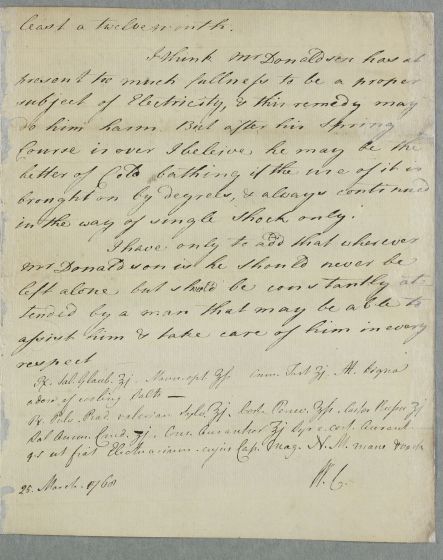 least a twelvemonth.
I think Mr Donaldson has at
present too much fullness to be a proper
subject of Electricity, & this remedy may
do him harm. But after his Spring
Course is over I beleive he may be the
better of Cold bathing if the use of it is
brought on by degrees, & always continued
in the way of single Shock only.
I have only to add that wherever
Mr Donaldson is he should never be
left alone but should be constantly at-
tended by a man that may be able to
assist him & take care of him in every
respect
℞. Sal. Glaub. ʒj. Crem. Tart ʒj. M. Signa
dose of cooling Salts —
℞. Pulv. Rad. valerian. Sylv. ʒj. Cort. Peruv.
Sal Cons. Aurantior ʒj Syr. e cort. Aurant
q.s. ut fiat Electuarium. cujus Cap. N. M. mane &
25. March. 1768
W. C.